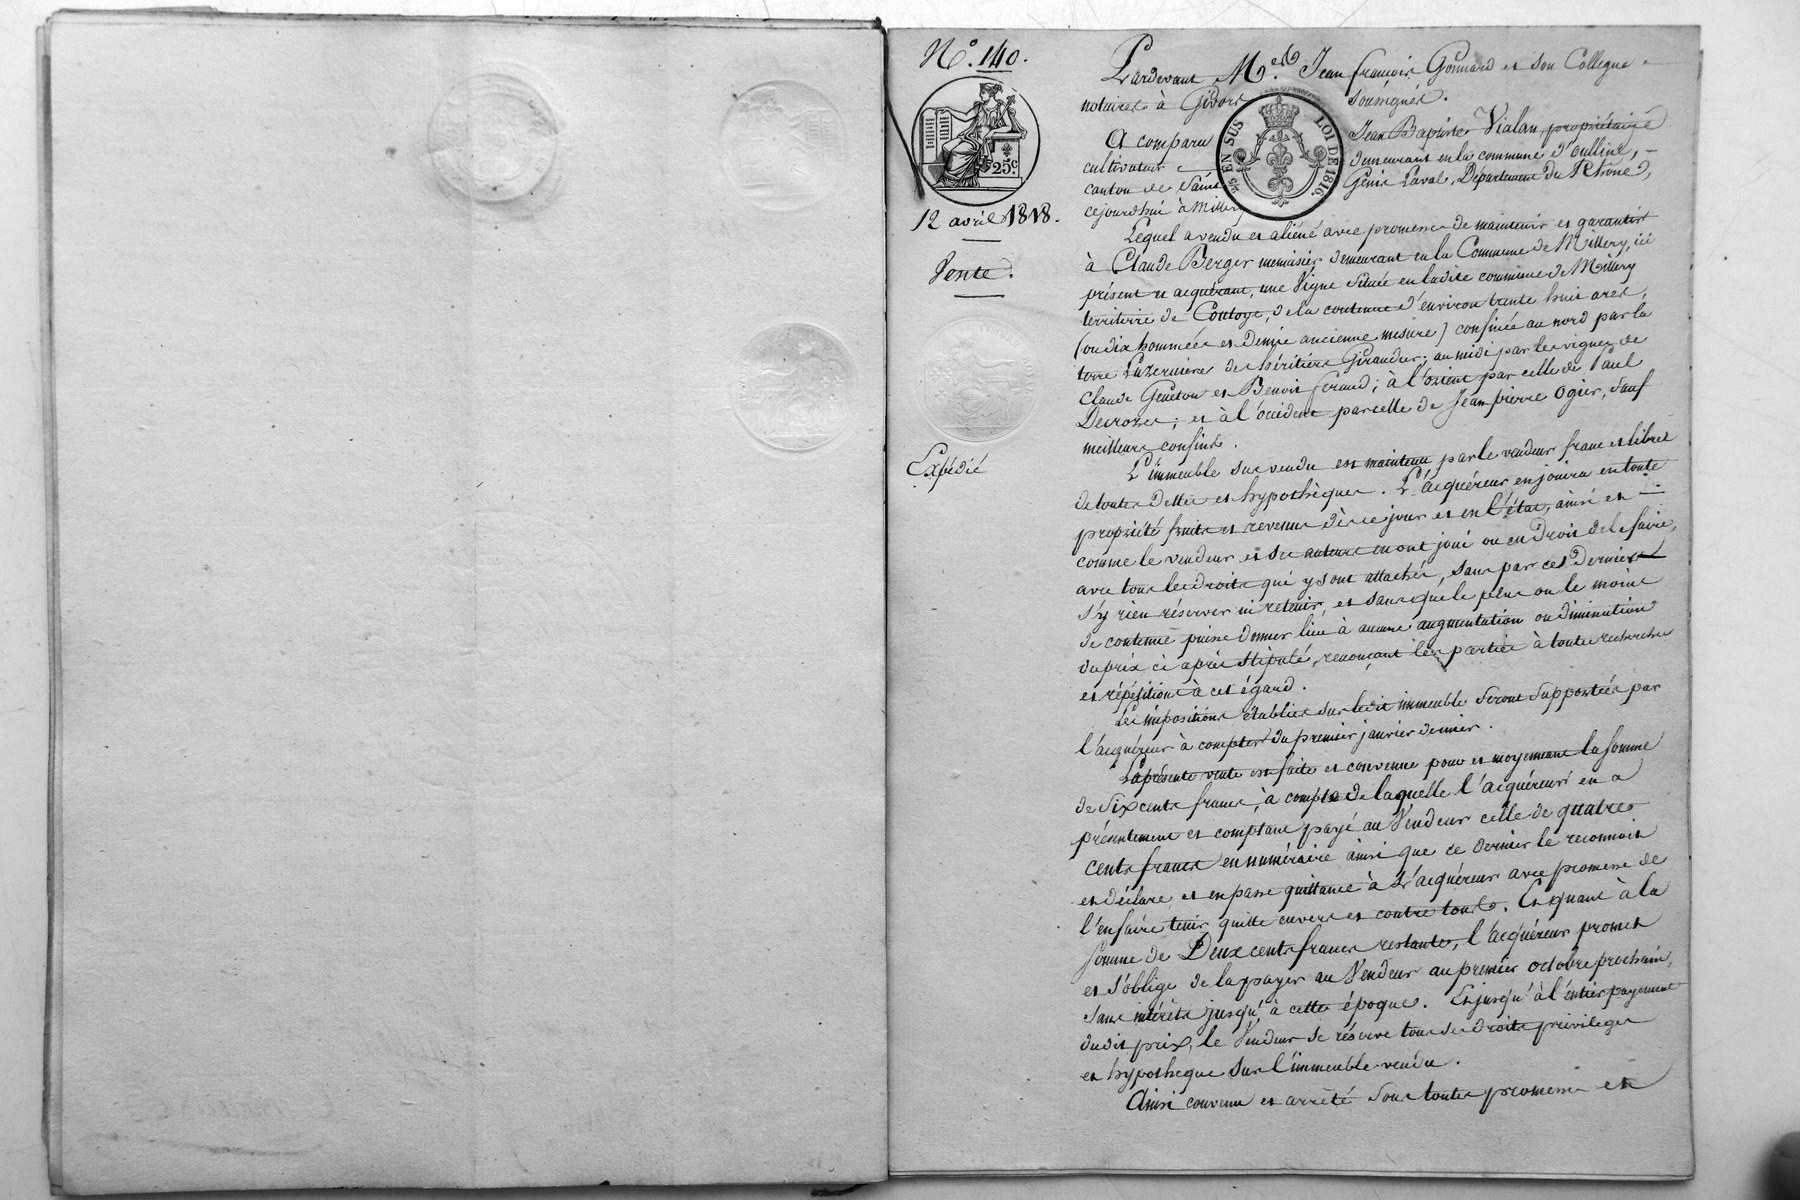 N.o 140.
25.c
12 avril 1818.
Vente.
Expédié
Pardevant M.es Jean françois Gonnard et son Collegue
notaires à Givors soussignés.
EN SUS LOI DE 1816.
A comparu Jean Baptiste Vialan, propriétaire
cultivateur demeurant en la commune d'oullins,
canton de Saint Genis Laval, Département du Rhône,
cejourdhui à Millery
Lequel a vendu et aliéné avec promesse de maintenir et garantir
à Claude Berger menuisier demeurant en la Commune de Millery, ici
présent et acquérant, une Vigne située en ladite commune de Millery
territoire de Coutoye, de la contenue d'environ trente huit ares,
(ou dix hommées et demie ancienne mesure) confinée au nord par la
terre Luzernière des héritiers Giraudier; au midi par les vignes de
Claude Géneton et Benoit feraud; à l'orient par celle de Paul
Decrozes; et à l'occident par celle de Jean pierre Ogier, sauf
meilleurs confins.
L'immeuble sus vendu est maintenu par le vendeur franc et libres
de toutes dettes et hypothèques. L'acquéreur en jouira en toute
propriété fruits et revenus dès ce jour et en l'état, ainsi et
comme le vendeur et ses auteurs en ont joui ou eu Droit de le faire,
avec tous les droits qui y sont attachés, sans par ces Derniers
s'y rien réserver ni retenir, et sans que le plus ou le moins
de contenue puisse donner lieu à aucune augmentation ou diminution
du prix ci après stipulé, renonçant les parties à toutes recherches
et répétitions à cet égard.
Les impositions établies sur ledit immeuble seront supportées par
l'acquéreur à compter du premier janvier dernier.
La présente vente est faite et convenue pour et moyennant la somme
de Six cents francs, à compte de laquelle l'acquéreur en a
présentement et comptant payé au Vendeur celle de quatre
cents francs en numéraire ainsi que ce dernier le reconnoit
et déclare et en passe quittance à L'acquéreur avec promesse de
l'en faire tenir quitte envers et contre tous. Et quant à la
somme de Deux cents francs restante, l'acquéreur promet
et s'oblige de la payer au Vendeur au premier octobre prochain,
sans intérêts jusqu'à cette époque. Et jusqu'à l'entier payement
dudit prix, le Vendeur se réserve tous ses droits privileges
et hypotheque sur l'immeuble vendu.
Ainsi convenu et arrêté sous toutes promesses et